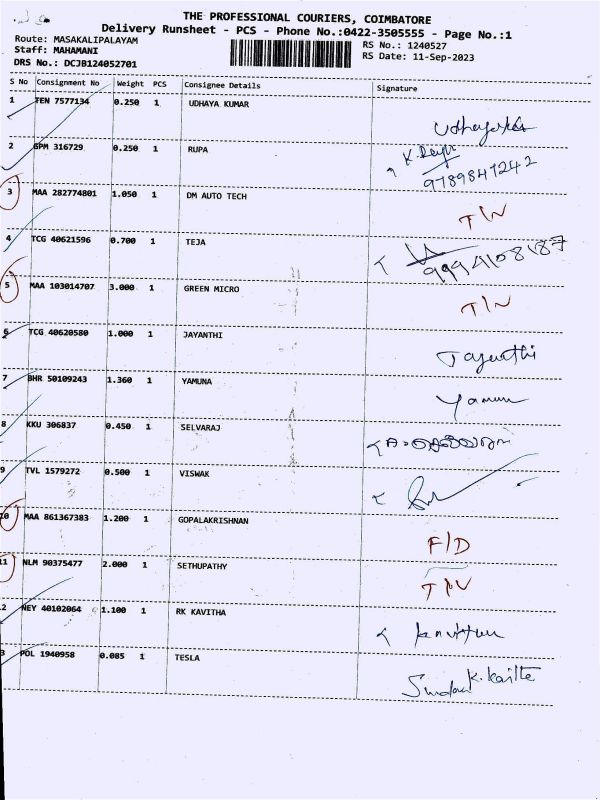 THE PROFESSIONAL COURIERS, COIMBATORE
Delivery Runsheet - PCS - Phone No.:0422-3505555 - Page No.:1
Route: MASAKALIPALAYAM
RS No.: 1240527
Staff: MAHAMANI
RS Date: 11-Sep-2023
DRS No.: DCJB124052701
S No Consignment No Weight PCS Consignee Details Signature
1 TEN 7577134 0.250 1 UDHAYA KUMAR
2 GPM 316729 0.250 1 RUPA
9789847242
3 MAA 282774801 1.050 1 DM AUTO TECH
4 TCG 40621596 0.700 1 TEJA
5 MAA 103014707 3.000 1 GREEN MICRO
6 TCG 40620580 1.000 1 JAYANTHI
7 BHR 50109243 1.360 1 YAMUNA
8 KKU 306837 0.450 1 SELVARAJ
9 TVL 1579272 0.500 1 VISWAK
10 MAA 861367383 1.200 1 GOPALAKRISHNAN
F/D
11 NLM 90375477 2.000 1 SETHUPATHY
2 NEY 40102064 1.100 1 RK KAVITHA
3 POL 1940958 0.085 1 TESLA